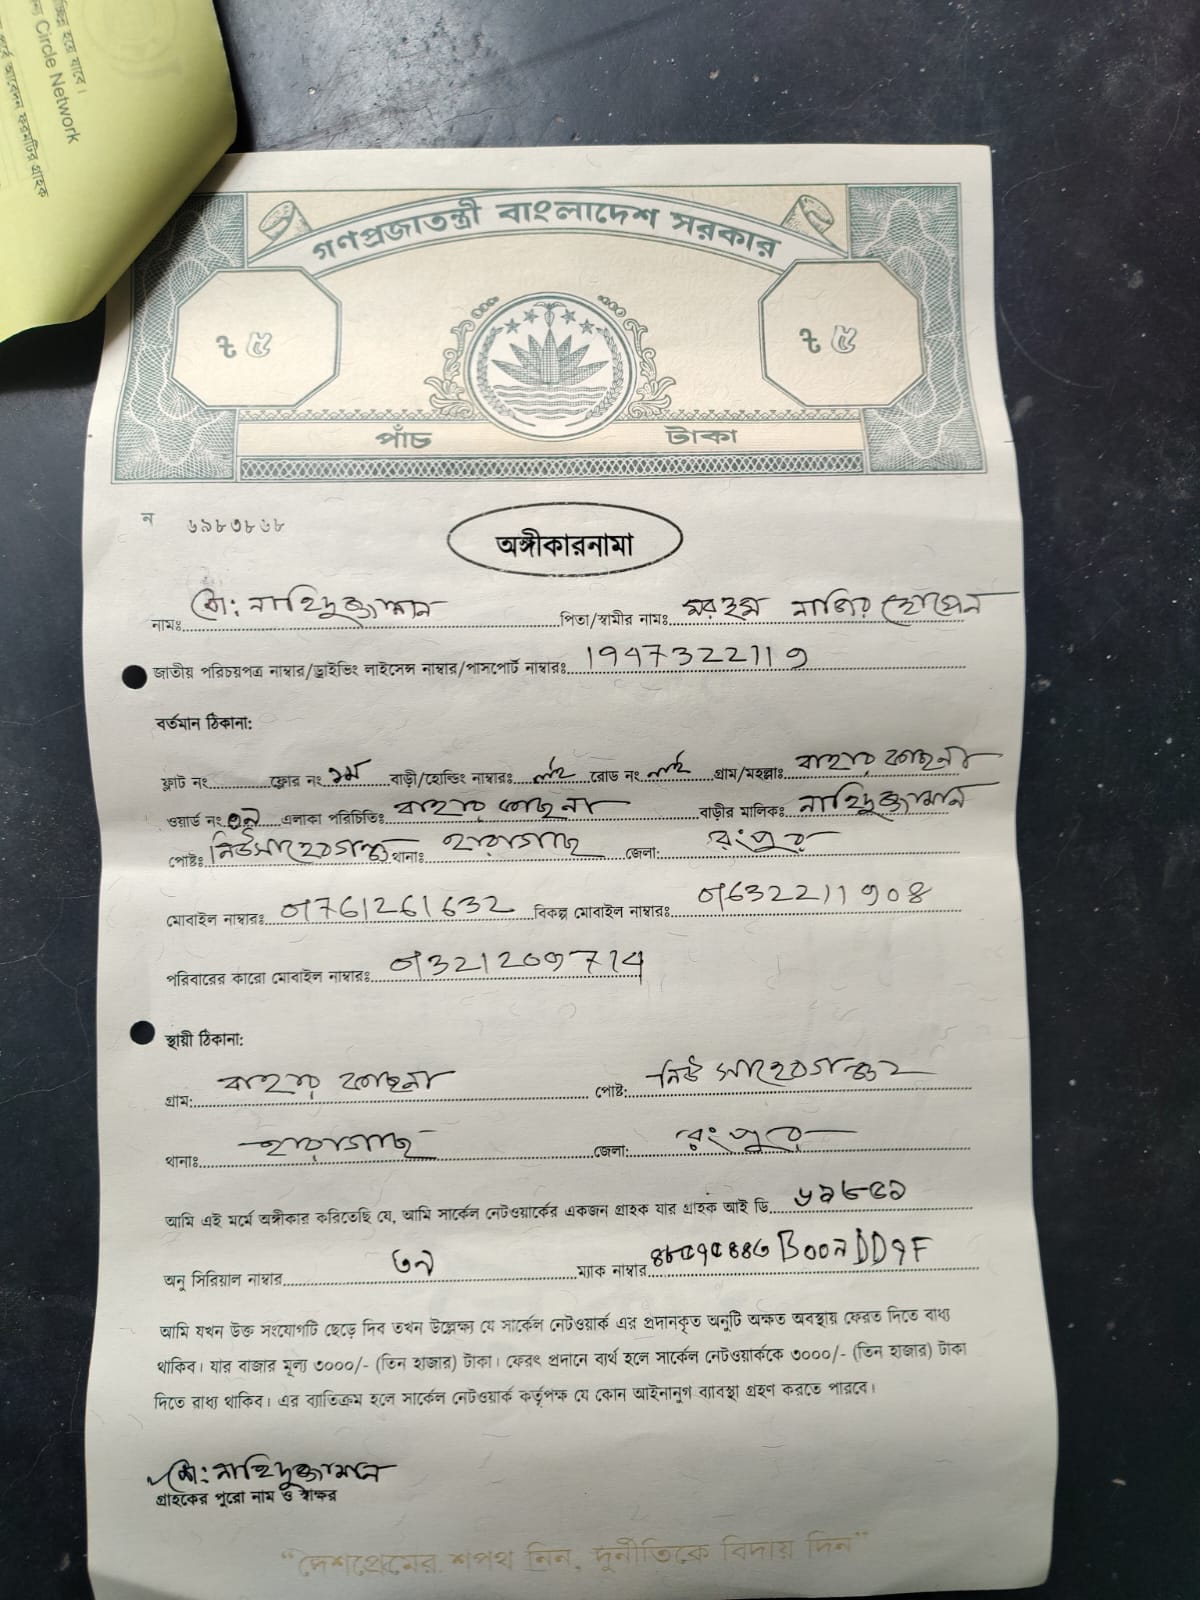 ছিন্ন হয়ে যাবে।
Circle Network
আবেদন ফরমটির গ্রাহক
গণপ্রজাতন্ত্রী বাংলাদেশ সরকার
৳ ৫
৳ ৫
পাঁচ টাকা
ন ৬৯৮৩৮৬৮
অঙ্গীকারনামা
নামঃ মো: নাহিদুজ্জামান পিতা/স্বামীর নামঃ মরহুম নাজির হোসেন
জাতীয় পরিচয়পত্র নাম্বার/ড্রাইভিং লাইসেন্স নাম্বার/পাসপোর্ট নাম্বারঃ
বর্তমান ঠিকানা:
ফ্লাট নং ফ্লোর নং ১ম বাড়ী/হোল্ডিং নাম্বারঃ নাই রোড নং নাই গ্রাম/মহল্লাঃ বাহার কাছনা
ওয়ার্ড নং এলাকা পরিচিতিঃ বাহার কাছনা বাড়ীর মালিকঃ নাহিদুজ্জামান
পোষ্টঃ নিউসাহেবগঞ্জ থানাঃ হারাগাছ জেলা: রংপুর
মোবাইল নাম্বারঃ 01761261632 বিকল্প মোবাইল নাম্বারঃ
পরিবারের কারো মোবাইল নাম্বারঃ
স্থায়ী ঠিকানা:
গ্রাম: বাহার কাছনা পোষ্ট: নিউ সাহেবগঞ্জ
থানাঃ হারাগাছ জেলা: রংপুর
আমি এই মর্মে অঙ্গীকার করিতেছি যে, আমি সার্কেল নেটওয়ার্কের একজন গ্রাহক যার গ্রাহক আই ডি
অনু সিরিয়াল নাম্বার ম্যাক নাম্বার
আমি যখন উক্ত সংযোগটি ছেড়ে দিব তখন উল্লেক্ষ্য যে সার্কেল নেটওয়ার্ক এর প্রদানকৃত অনুটি অক্ষত অবস্থায় ফেরত দিতে বাধ্য
থাকিব। যার বাজার মূল্য ৩০০০/- (তিন হাজার) টাকা। ফেরৎ প্রদানে ব্যর্থ হলে সার্কেল নেটওয়ার্ককে ৩০০০/- (তিন হাজার) টাকা
দিতে বাধ্য থাকিব। এর ব্যাতিক্রম হলে সার্কেল নেটওয়ার্ক কর্তৃপক্ষ যে কোন আইনানুগ ব্যাবস্থা গ্রহণ করতে পারবে।
মো: নাহিদুজ্জামান
গ্রাহকের পুরো নাম ও স্বাক্ষর
“দেশপ্রেমের শপথ নিন, দুর্নীতিকে বিদায় দিন”